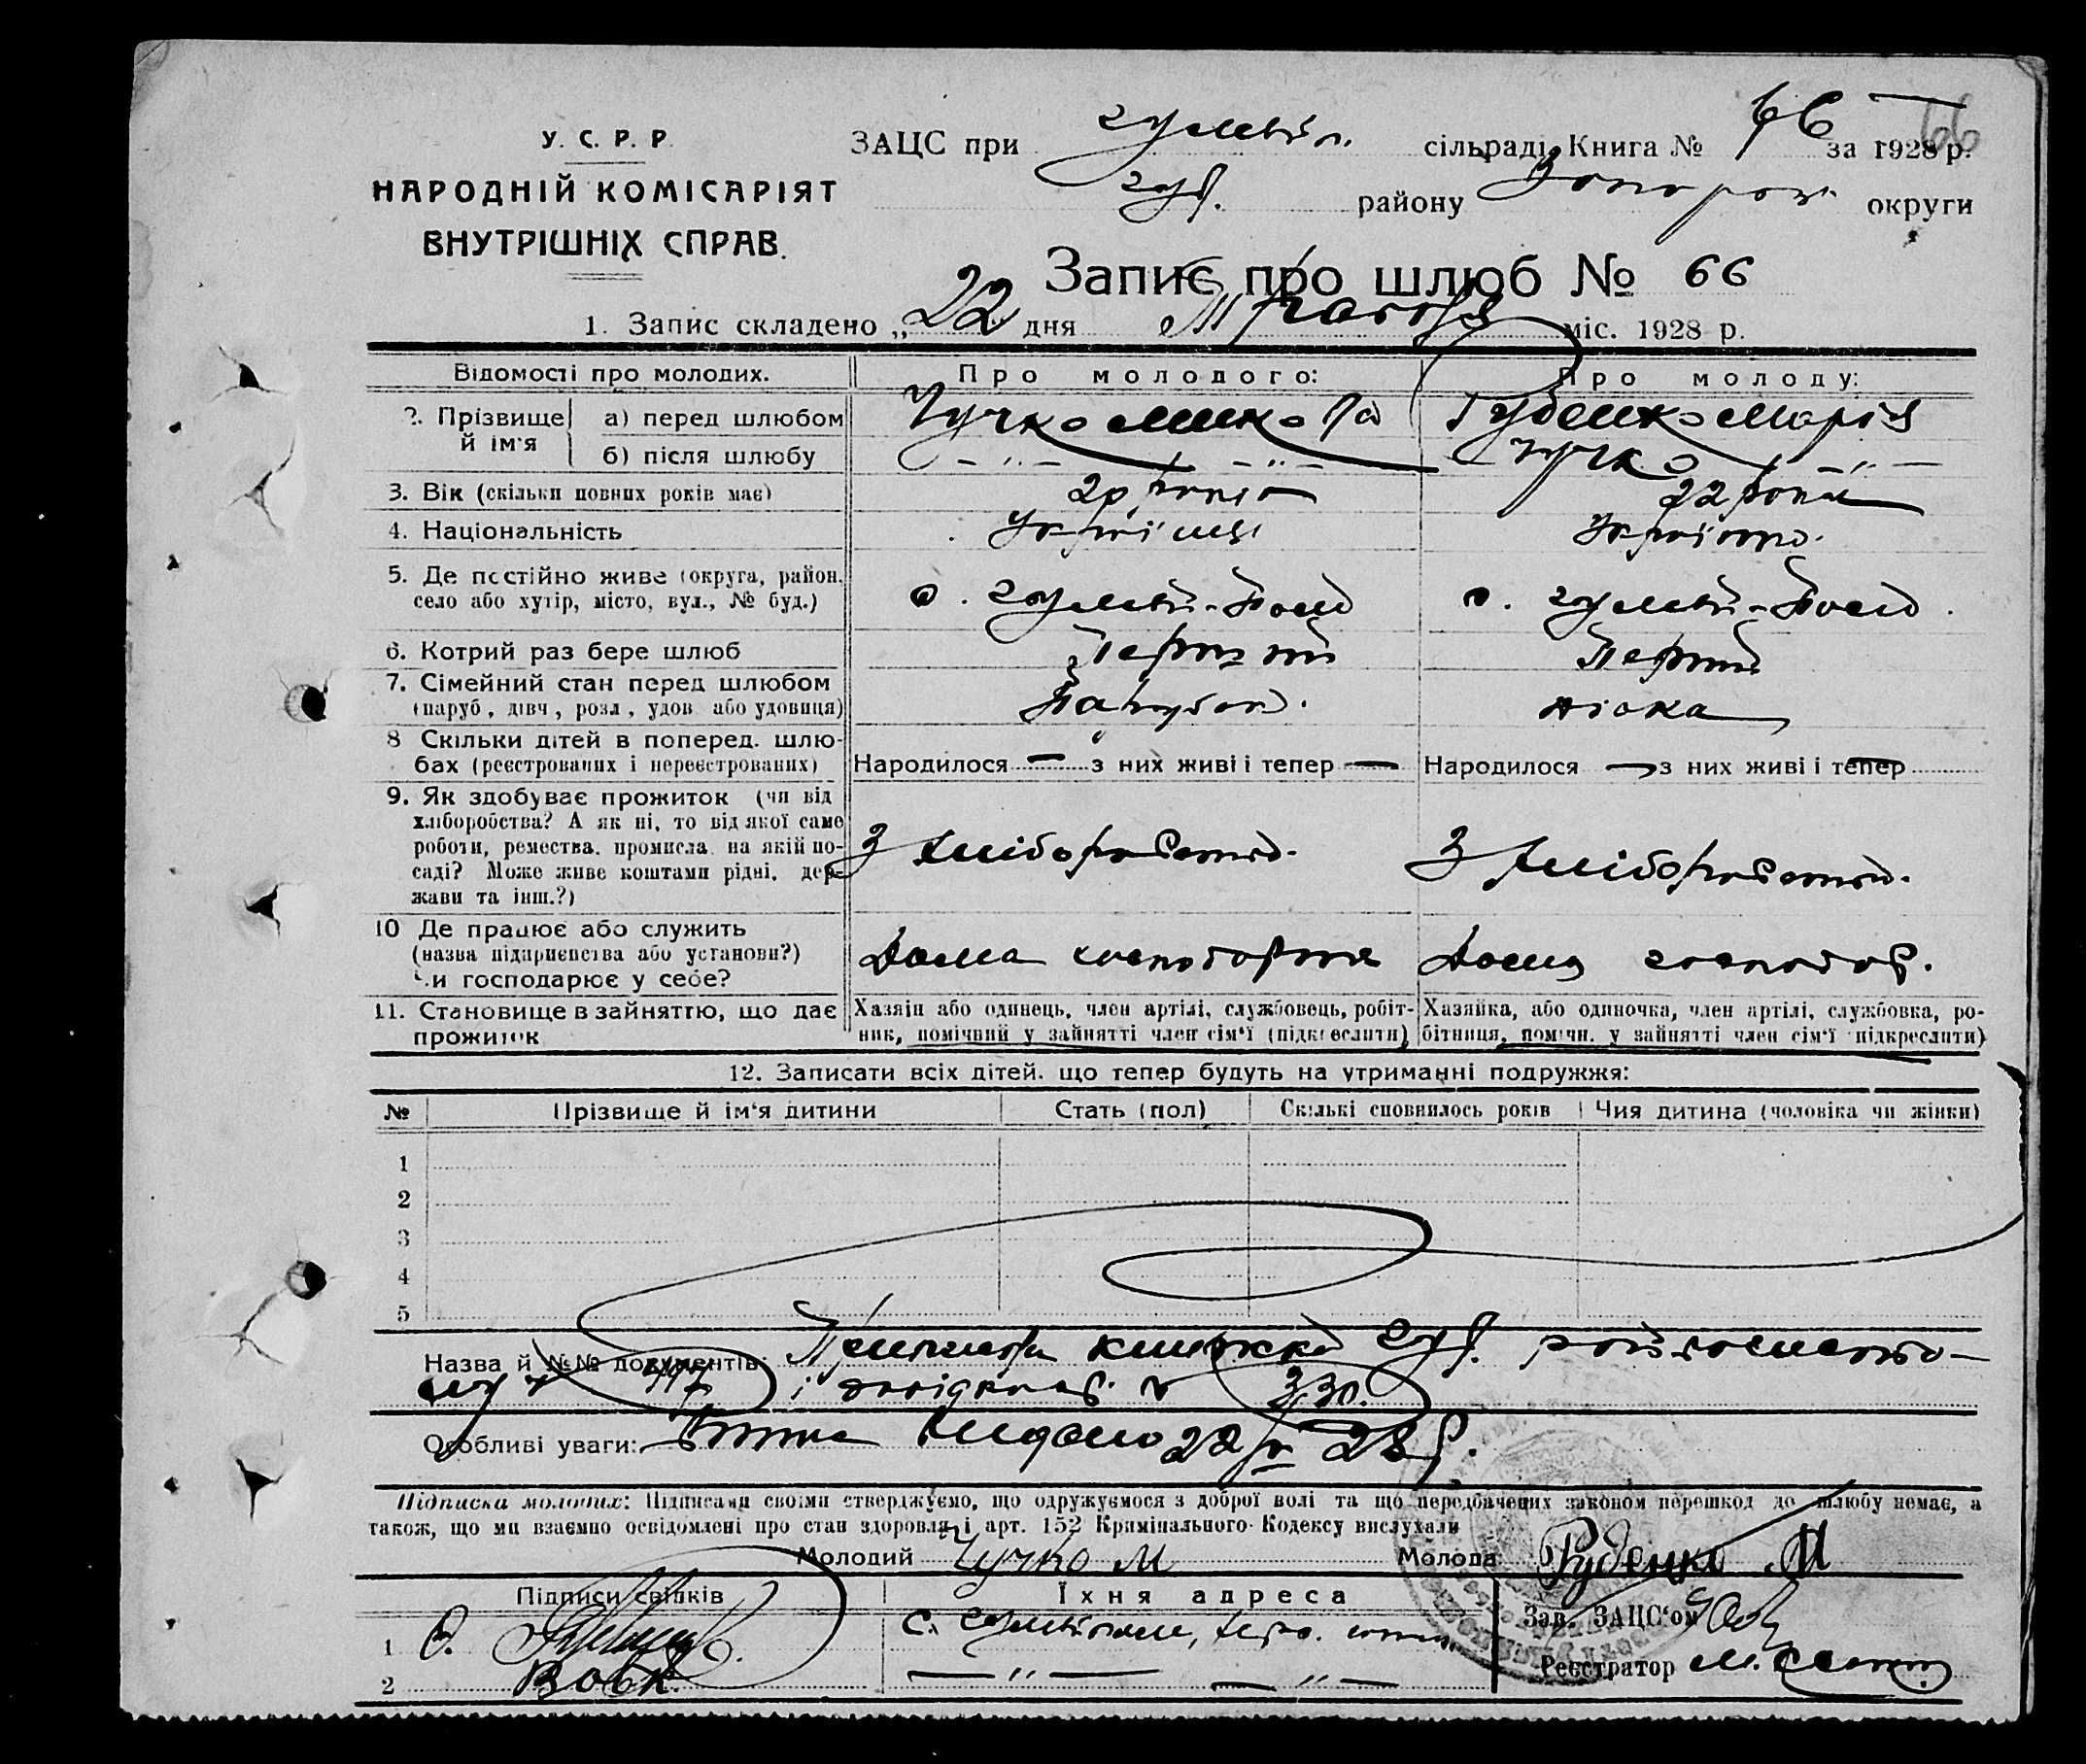 У. С. Р. Р.
НАРОДНІЙ КОМІСАРІЯТ
ВНУТРІШНІХ СПРАВ.
ЗАЦС при Гуляйп. сільраді Книга № за 1928 р.
району Запоріз. округи
Запис про шлюб № 66
1. Запис складено „22 дня міс. 1928 р.
Відомості про молодих. Про молодого: Про молоду:
2. Прізвище й ім'я
а) перед шлюбом Чучко Микола Руденко Марія
б) після шлюбу —„— —„— Чучко —„—
3. Вік (скільки повних років має) 20 років 22 роки
4. Національність Українець Українка.
5. Де постійно живе (округа, район,
село або хутір, місто, вул., № буд.) с. Гуляй-Поле с. Гуляй-Поле.
6. Котрий раз бере шлюб Перший Перший
7. Сімейний стан перед шлюбом
(паруб., дівч., розл., удов. або удовиця) Парубок. Дівка
8. Скільки дітей в поперед. шлю-
бах (реєстрованих і нереєстрованих) Народилося — з них живі і тепер — Народилося — з них живі і тепер —
9. Як здобуває прожиток (чи від
хліборобства? А як ні, то від якої саме
роботи, ремества, промисла, на якій по-
саді? Може живе коштами рідні, дер-
жави та інш.?) З хліборобства. З хліборобства.
10. Де працює або служить
(назва підприємства або установи?)
Чи господарює у себе? Дома Дома господар.
11. Становище в зайняттю, що дає
прожиток
Хазяїн або одинець, член артілі, службовець, робіт-
ник, помічний у зайнятті член сім'ї (підкреслити)
Хазяйка, або одиночка, член артілі, службовка, ро-
бітниця, помічн. у зайнятті член сім'ї (підкреслити)
12. Записати всіх дітей, що тепер будуть на утриманні подружжя:
№ Прізвище й ім'я дитини Стать (пол) Скількі сповнилось років Чия дитина (чоловіка чи жінки)
1
2
3
4
5
Назва й №№ документів: книжка
і 330.
Особливі уваги: видано 22/V 28 р.
Підписка молодих: Підписами своїми стверджуємо, що одружуємося з доброї волі та що передбачених законом перешкод до шлюбу немає, а
також, що ми взаємно освідомлені про стан здоровля і арт. 152 Кримінального Кодексу вислухали
Молодий Чучко М Молода Руденко М
Підписи свідків Їхня адреса Зав. ЗАЦС'ом
1 с. Гуляйполе,
2 Вовк. —„— —„— Реєстратор